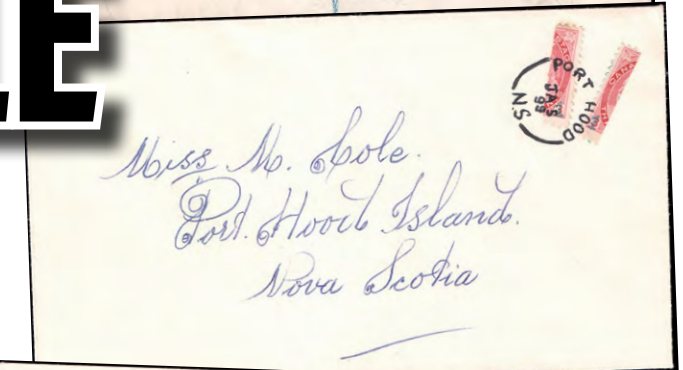 LE
PORT HOOD
N.S.
Miss M. Hole.
Port. Hood Island.
Nova Scotia